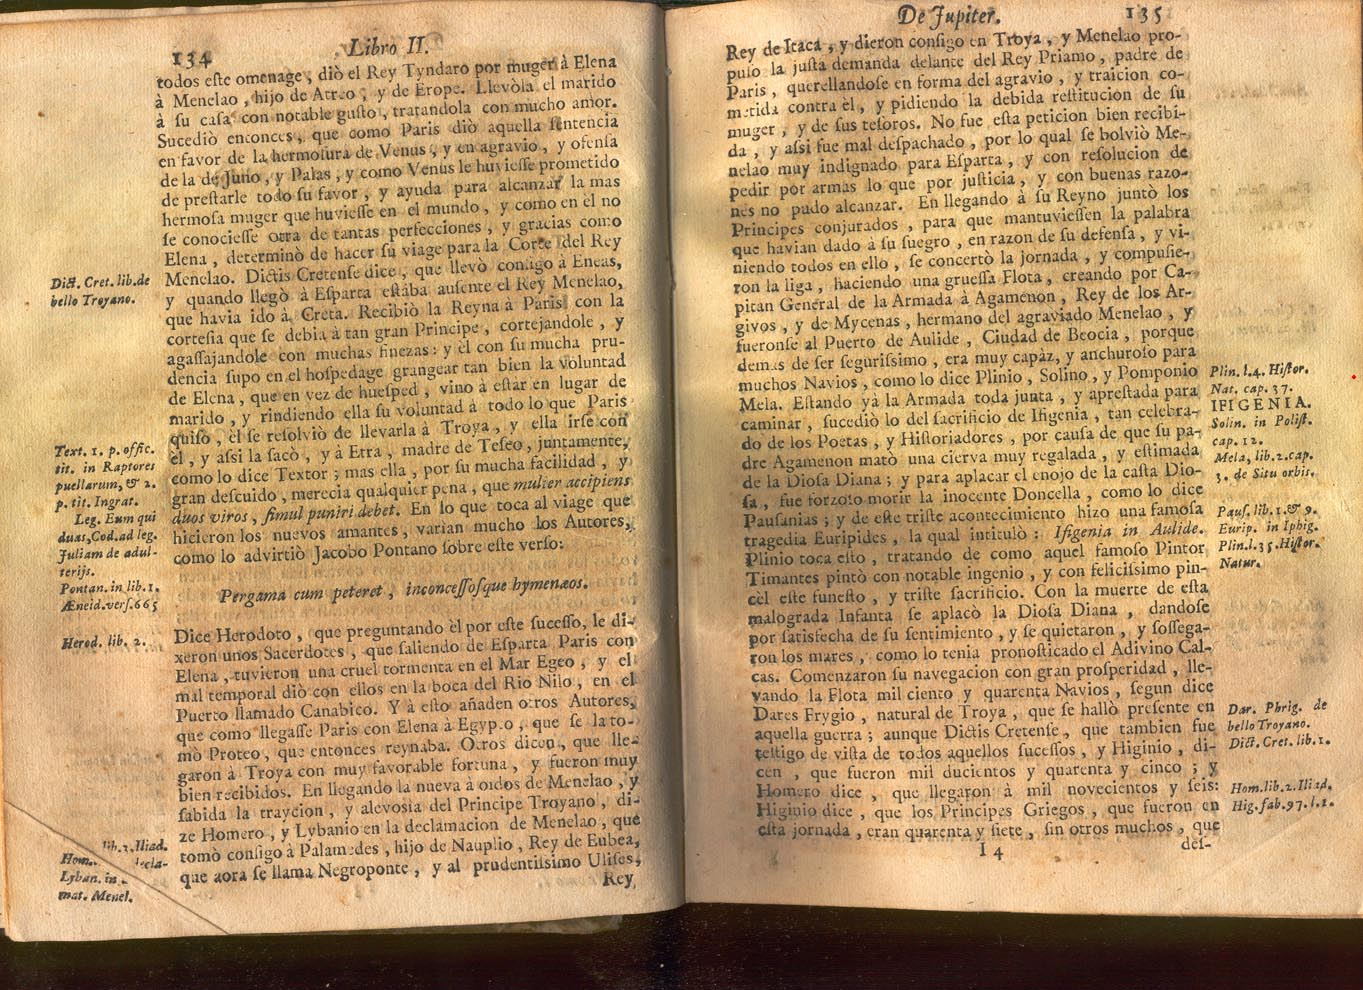 134
Libro II.
todos este omenage, diò el Rey Tyndaro por muger à Elena
à Menelao, hijo de Atreo, y de Erope. Llevòla el marido
à su casa con notable gusto, tratandola con mucho amor.
Sucediò entonces, que como Paris diò aquella sentencia
en favor de la hermosura de Venus, y en agravio, y ofensa
de la de Juno, y Palas, y como Venus le huviesse prometido
de prestarle todo su favor, y ayuda para alcanzar la mas
hermosa muger que huviesse en el mundo, y como en èl no
se conociesse otra de tantas perfecciones, y gracias como
Elena, determinò de hacer su viage para la Corte del Rey
Menelao. Dictis Cretense dice, que llevò consigo à Eneas,
y quando llegò à Esparta estàba ausente el Rey Menelao,
que havia ido à Creta. Recibiò la Reyna à Paris con la
cortesia que se debia à tan gran Principe, cortejandole, y
agassajandole con muchas finezas: y èl con su mucha pru-
dencia supo en el hospedage grangear tan bien la voluntad
de Elena, que en vez de huesped, vino à estàr en lugar de
marido, y rindiendo ella su voluntad à todo lo que Paris
quiso, èl se resolviò de llevarla à Troya, y ella irse con
èl, y assi la sacò, y à Etra, madre de Teseo, juntamente,
como lo dice Textor; mas ella, por su mucha facilidad, y
gran descuido, merecia qualquier pena, que mulier accipiens
duos viros, simul puniri debet. En lo que toca al viage que
hicieron los nuevos amantes, varian mucho los Autores,
como lo advirtiò Jacobo Pontano sobre este verso:
Pergama cum peteret, inconcessosque hymenæos.
Dice Herodoto, que preguntando èl por este sucesso, le di-
xeron unos Sacerdotes, que saliendo de Esparta Paris con
Elena, tuvieron una cruel tormenta en el Mar Egeo, y el
mal temporal diò con ellos en la boca del Rio Nilo, en el
Puerto llamado Canabico. Y à esto añaden otros Autores,
que como llegasse Paris con Elena à Egypto, que se la to-
mò Proteo, que entonces reynaba. Otros dicen, que lle-
garon à Troya con muy favorable fortuna, y fueron muy
bien recibidos. En llegando la nueva à oidos de Menelao, y
sabida la traycion, y alevosia del Principe Troyano, di-
ze Homero, y Lybanio en la declamacion de Menelao, que
tomò consigo à Palamedes, hijo de Nauplio, Rey de Eubea,
que aora se llama Negroponte, y al prudentissimo Ulises,
Rey
Dict. Cret. lib. de
bello Troyano.
Text. 1. p. offic.
tit. in Raptores
puellarum, & 2.
p. tit. Ingrat.
Leg. Eum qui
duas, Cod. ad leg.
Juliam de adul-
terijs.
Pontan. in lib. 1.
Æneid. vers. 665
Herod. lib. 2.
Hom. lib. 2. Iliad.
Lyban. in decla-
mat. Menel.
De Jupiter.
135
Rey de Itaca, y dieron consigo en Troya, y Menelao pro-
puso la justa demanda delante del Rey Priamo, padre de
Paris, querellandose en forma del agravio, y traicion co-
metida contra èl, y pidiendo la debida restitucion de su
muger, y de sus tesoros. No fue esta peticion bien recibi-
da, y assi fue mal despachado, por lo qual se bolviò Me-
nelao muy indignado para Esparta, y con resolucion de
pedir por armas lo que por justicia, y con buenas razo-
nes no pudo alcanzar. En llegando à su Reyno juntò los
Principes conjurados, para que mantuviessen la palabra
que havian dado à su suegro, en razon de su defensa, y vi-
niendo todos en ello, se concertò la jornada, y compusie-
ron la liga, haciendo una gruessa Flota, creando por Ca-
pitan General de la Armada à Agamenon, Rey de los Ar-
givos, y de Mycenas, hermano del agraviado Menelao, y
fueronse al Puerto de Aulide, Ciudad de Beocia, porque
demas de ser segurissimo, era muy capàz, y anchuroso para
muchos Navios, como lo dice Plinio, Solino, y Pomponio
Mela. Estando yà la Armada toda junta, y aprestada para
caminar, sucediò lo del sacrificio de Ifigenia, tan celebra-
do de los Poetas, y Historiadores, por causa de que su pa-
dre Agamenon matò una cierva muy regalada, y estimada
de la Diosa Diana; y para aplacar el enojo de la casta Dio-
sa, fue forzoso morir la inocente Doncella, como lo dice
Pausanias; y de este triste acontecimiento hizo una famosa
tragedia Euripides, la qual intitulò: Ifigenia in Aulide.
Plinio toca esto, tratando de como aquel famoso Pintor
Timantes pintò con notable ingenio, y con felicissimo pin-
cèl este funesto, y triste sacrificio. Con la muerte de esta
malograda Infanta se aplacò la Diosa Diana, dandose
por satisfecha de su sentimiento, y se quietaron, y sossega-
ron los mares, como lo tenia pronosticado el Adivino Cal-
cas. Comenzaron su navegacion con gran prosperidad, lle-
vando la Flota mil ciento y quarenta Navios, segun dice
Dares Frygio, natural de Troya, que se hallò presente en
aquella guerra; aunque Dictis Cretense, que tambien fue
testigo de vista de todos aquellos sucessos, y Higinio, di-
cen, que fueron mil ducientos y quarenta y cinco; y
Homero dice, que llegaron à mil novecientos y seis:
Higinio dice, que los Principes Griegos, que fueron en
esta jornada, eran quarenta y siete, sin otros muchos, que
I 4
des-
Plin. l. 4. Histor.
Nat. cap. 37.
IFIGENIA.
Solin. in Polist.
cap. 12.
Mela, lib. 2. cap.
3. de Situ orbis.
Paus. lib. 1. & 9.
Eurip. in Iphig.
Plin. l. 35. Histor.
Natur.
Dar. Phrig. de
bello Troyano.
Dict. Cret. lib. 1.
Hom. lib. 2. Iliad.
Hig. fab. 97. l. 1.